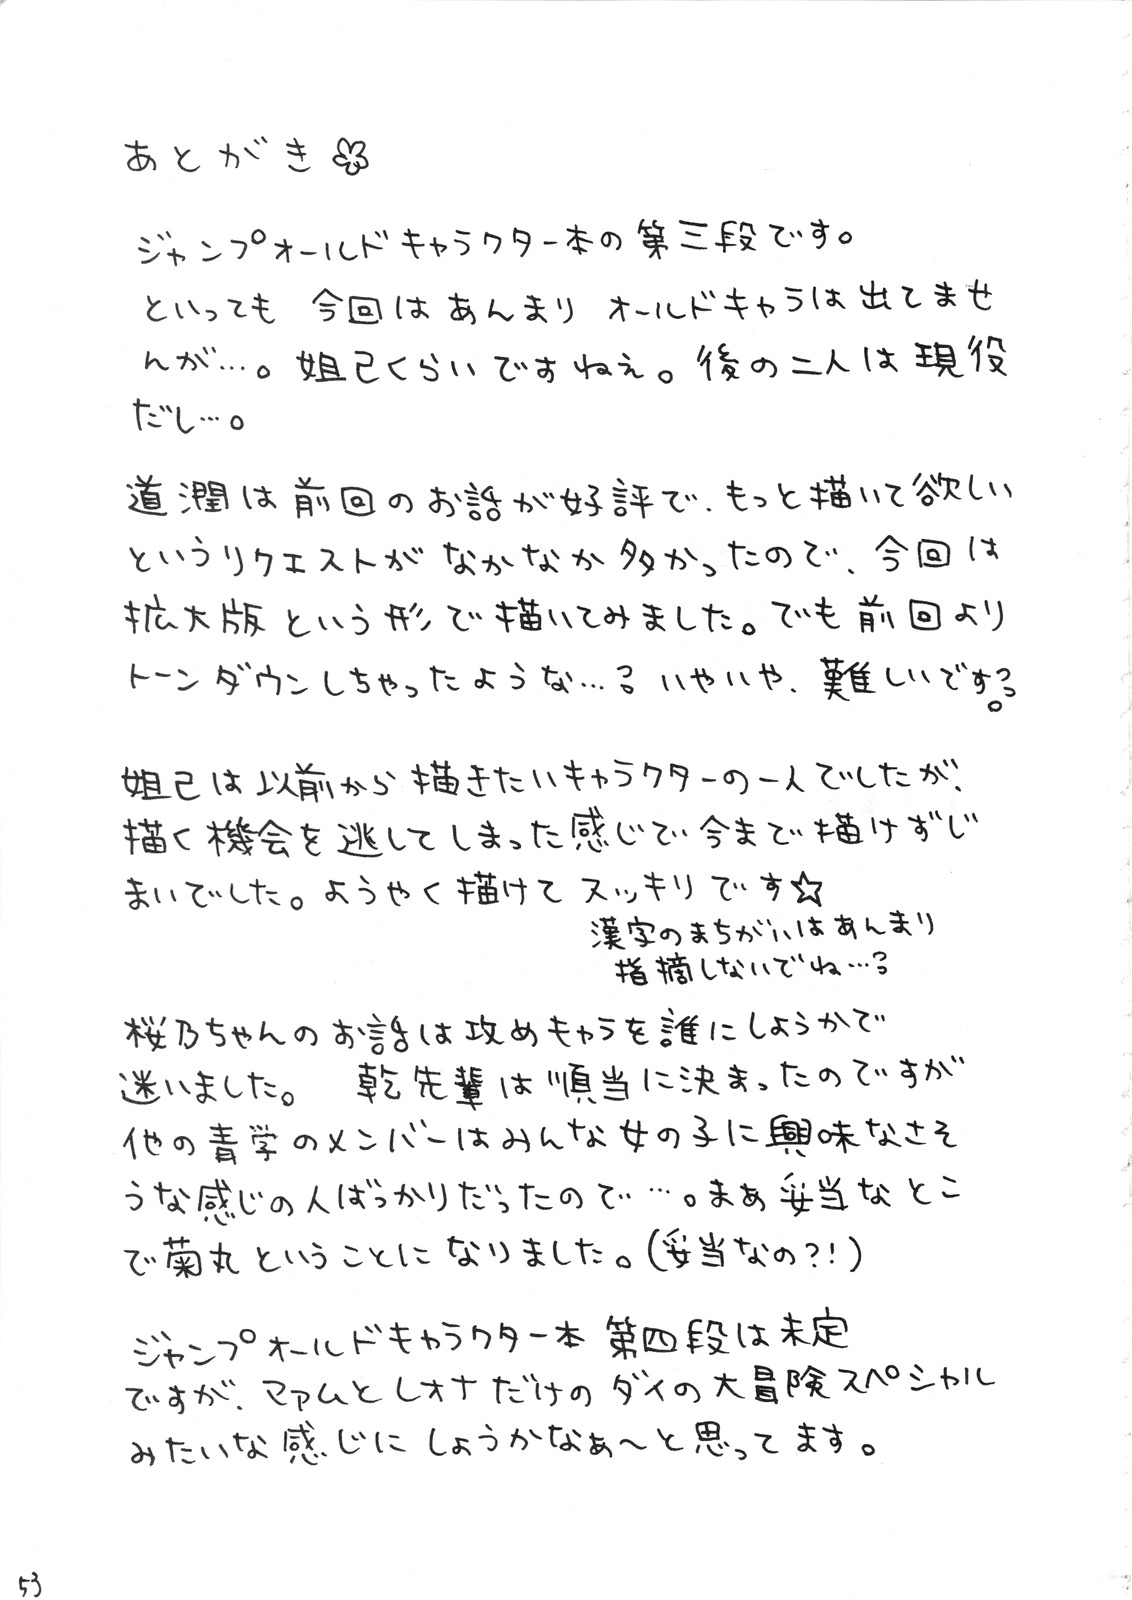 あとがき
ジャンプオールドキャラクター本の第三段です。
といっても 今回はあんまり オールドキャラは出てませ
んが…。妲己くらいですねえ。後の二人は現役
だし…。
道潤は前回のお話が好評で、もっと描いて欲しい
というリクエストがなかなか多かったので、今回は
拡大版という形で描いてみました。でも前回より
トーンダウンしちゃったような…? いやいや、難しいです?。
妲己は以前から描きたいキャラクターの一人でしたが、
描く機会を逃してしまった感じで今まで描けずじ
まいでした。ようやく描けてスッキリです☆
漢字のまちがいはあんまり
指摘しないでね…?
桜乃ちゃんのお話は攻めキャラを誰にしようかで
迷いました。 乾先輩は順当に決まったのですが
他の青学のメンバーはみんな女の子に興味なさそ
うな感じの人ばっかりだったので…。まあ妥当なとこ
で菊丸ということになりました。(妥当なの?!)
ジャンプオールドキャラクター本 第四段は未定
ですが、マァムとレオナだけのダイの大冒険スペシャル
みたいな感じにしようかなぁ〜と思ってます。
53